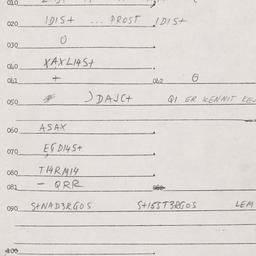 020 IDIS+ ... PROST IDIS+
030 O
040 XAXLI4S+
041 + 042 θ
050 )DAJC+ QI ER KENNIT
060 ASAX
070 EGDI4S+
080 TI4RMI4
081 – QRR
090 S+NAD3RGOS S+153T3RGOS LEM
100